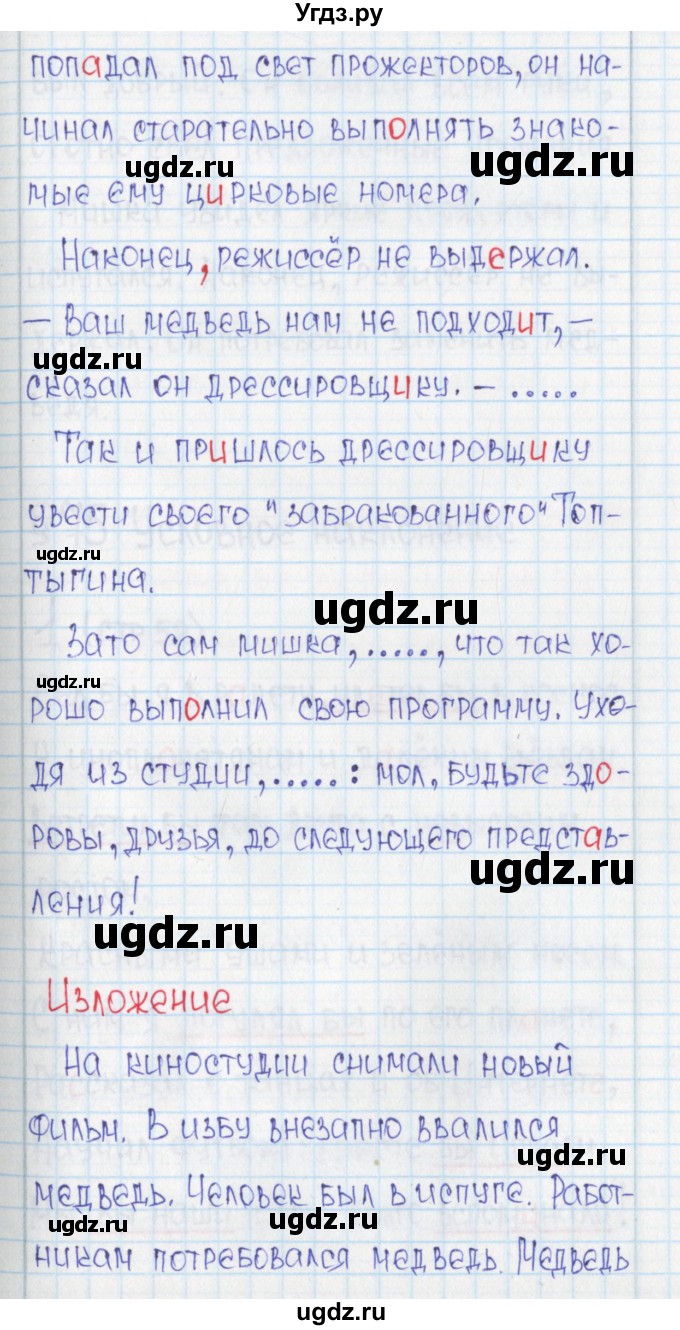 Угдз.ру
попадал под свет прожекторов, он на-
чинал старательно выполнять знако-
ugdz.ru ugdz.ru
мые ему цирковые номера.
ugdz.ru
Наконец, режиссёр не выдержал.
— Ваш медведь нам не подходит, —
ugdz.ru
сказал он дрессировщику. — .....
Так и пришлось дрессировщику
увести своего "забракованного" Топ-
ugdz.ru
тыгина.
ugdz.ru
Зато сам мишка, ....., что так хо-
ugdz.ru
рошо выполнил свою программу. Ухо-
дя из студии, .....: мол, будьте здо-
ровы, друзья, до следующего представ-
ugdz.ru
ления!
ugdz.ru
Изложение
На киностудии снимали новый
фильм. В избу внезапно ввалился
ugdz.ru
медведь. Человек был в испуге. Работ-
ugdz.ru ugdz.ru
никам потребовался медведь. Медведь
ugdz.ru